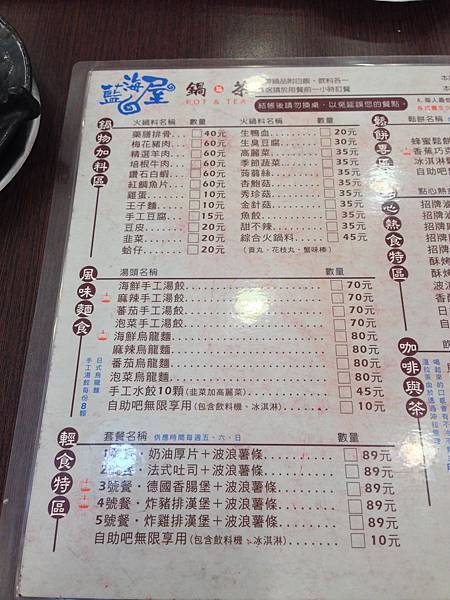 藍海屋
鍋 茶
POT & TEA
結帳後請勿換桌，以免延誤您的餐點
鍋物加料區
火鍋料名稱 數量
藥膳排骨 40元
梅花豬肉 60元
精選羊肉 60元
培根牛肉 60元
鑽石白蝦 60元
紅鯛魚片 60元
雞蛋 10元
王子麵 10元
手工豆腐 15元
豆皮 20元
韭菜 20元
蛤仔 20元
火鍋料名稱 數量
生鴨血 20元
生臭豆腐 30元
高麗菜 35元
季節蔬菜 35元
蒟蒻絲 35元
杏鮑菇 35元
秀珍菇 35元
金針菇 35元
魚餃 35元
甜不辣 35元
綜合火鍋料 45元
(貢丸、花枝丸、蟹味棒)
風味麵食
日式烏龍麵
手工湯餃每份8顆
湯頭名稱 數量
海鮮手工湯餃 70元
麻辣手工湯餃 70元
蕃茄手工湯餃 70元
泡菜手工湯餃 70元
海鮮烏龍麵 70元
麻辣烏龍麵 70元
番茄烏龍麵 70元
泡菜烏龍麵 70元
手工水餃10顆(韭菜加高麗菜) 45元
自助吧無限享用(包含飲料機、冰淇淋) 10元
輕食特區
套餐名稱 供應時間每週五、六、日 數量
奶油厚片＋波浪薯條 89元
法式吐司＋波浪薯條 89元
3號餐・德國香腸堡＋波浪薯條 89元
4號餐・炸豬排漢堡＋波浪薯條 89元
5號餐・炸雞排漢堡＋波浪薯條 89元
自助吧無限享用(包含飲料機、冰淇淋) 10元
鬆餅專區
鬆餅名稱
蜂蜜鬆餅
香蕉巧克
冰淇淋
自助吧
點心熱食特區
點心熱
招牌滷
招牌滷
招牌
招牌
酥烤
酥烤
波浪
咖啡與茶